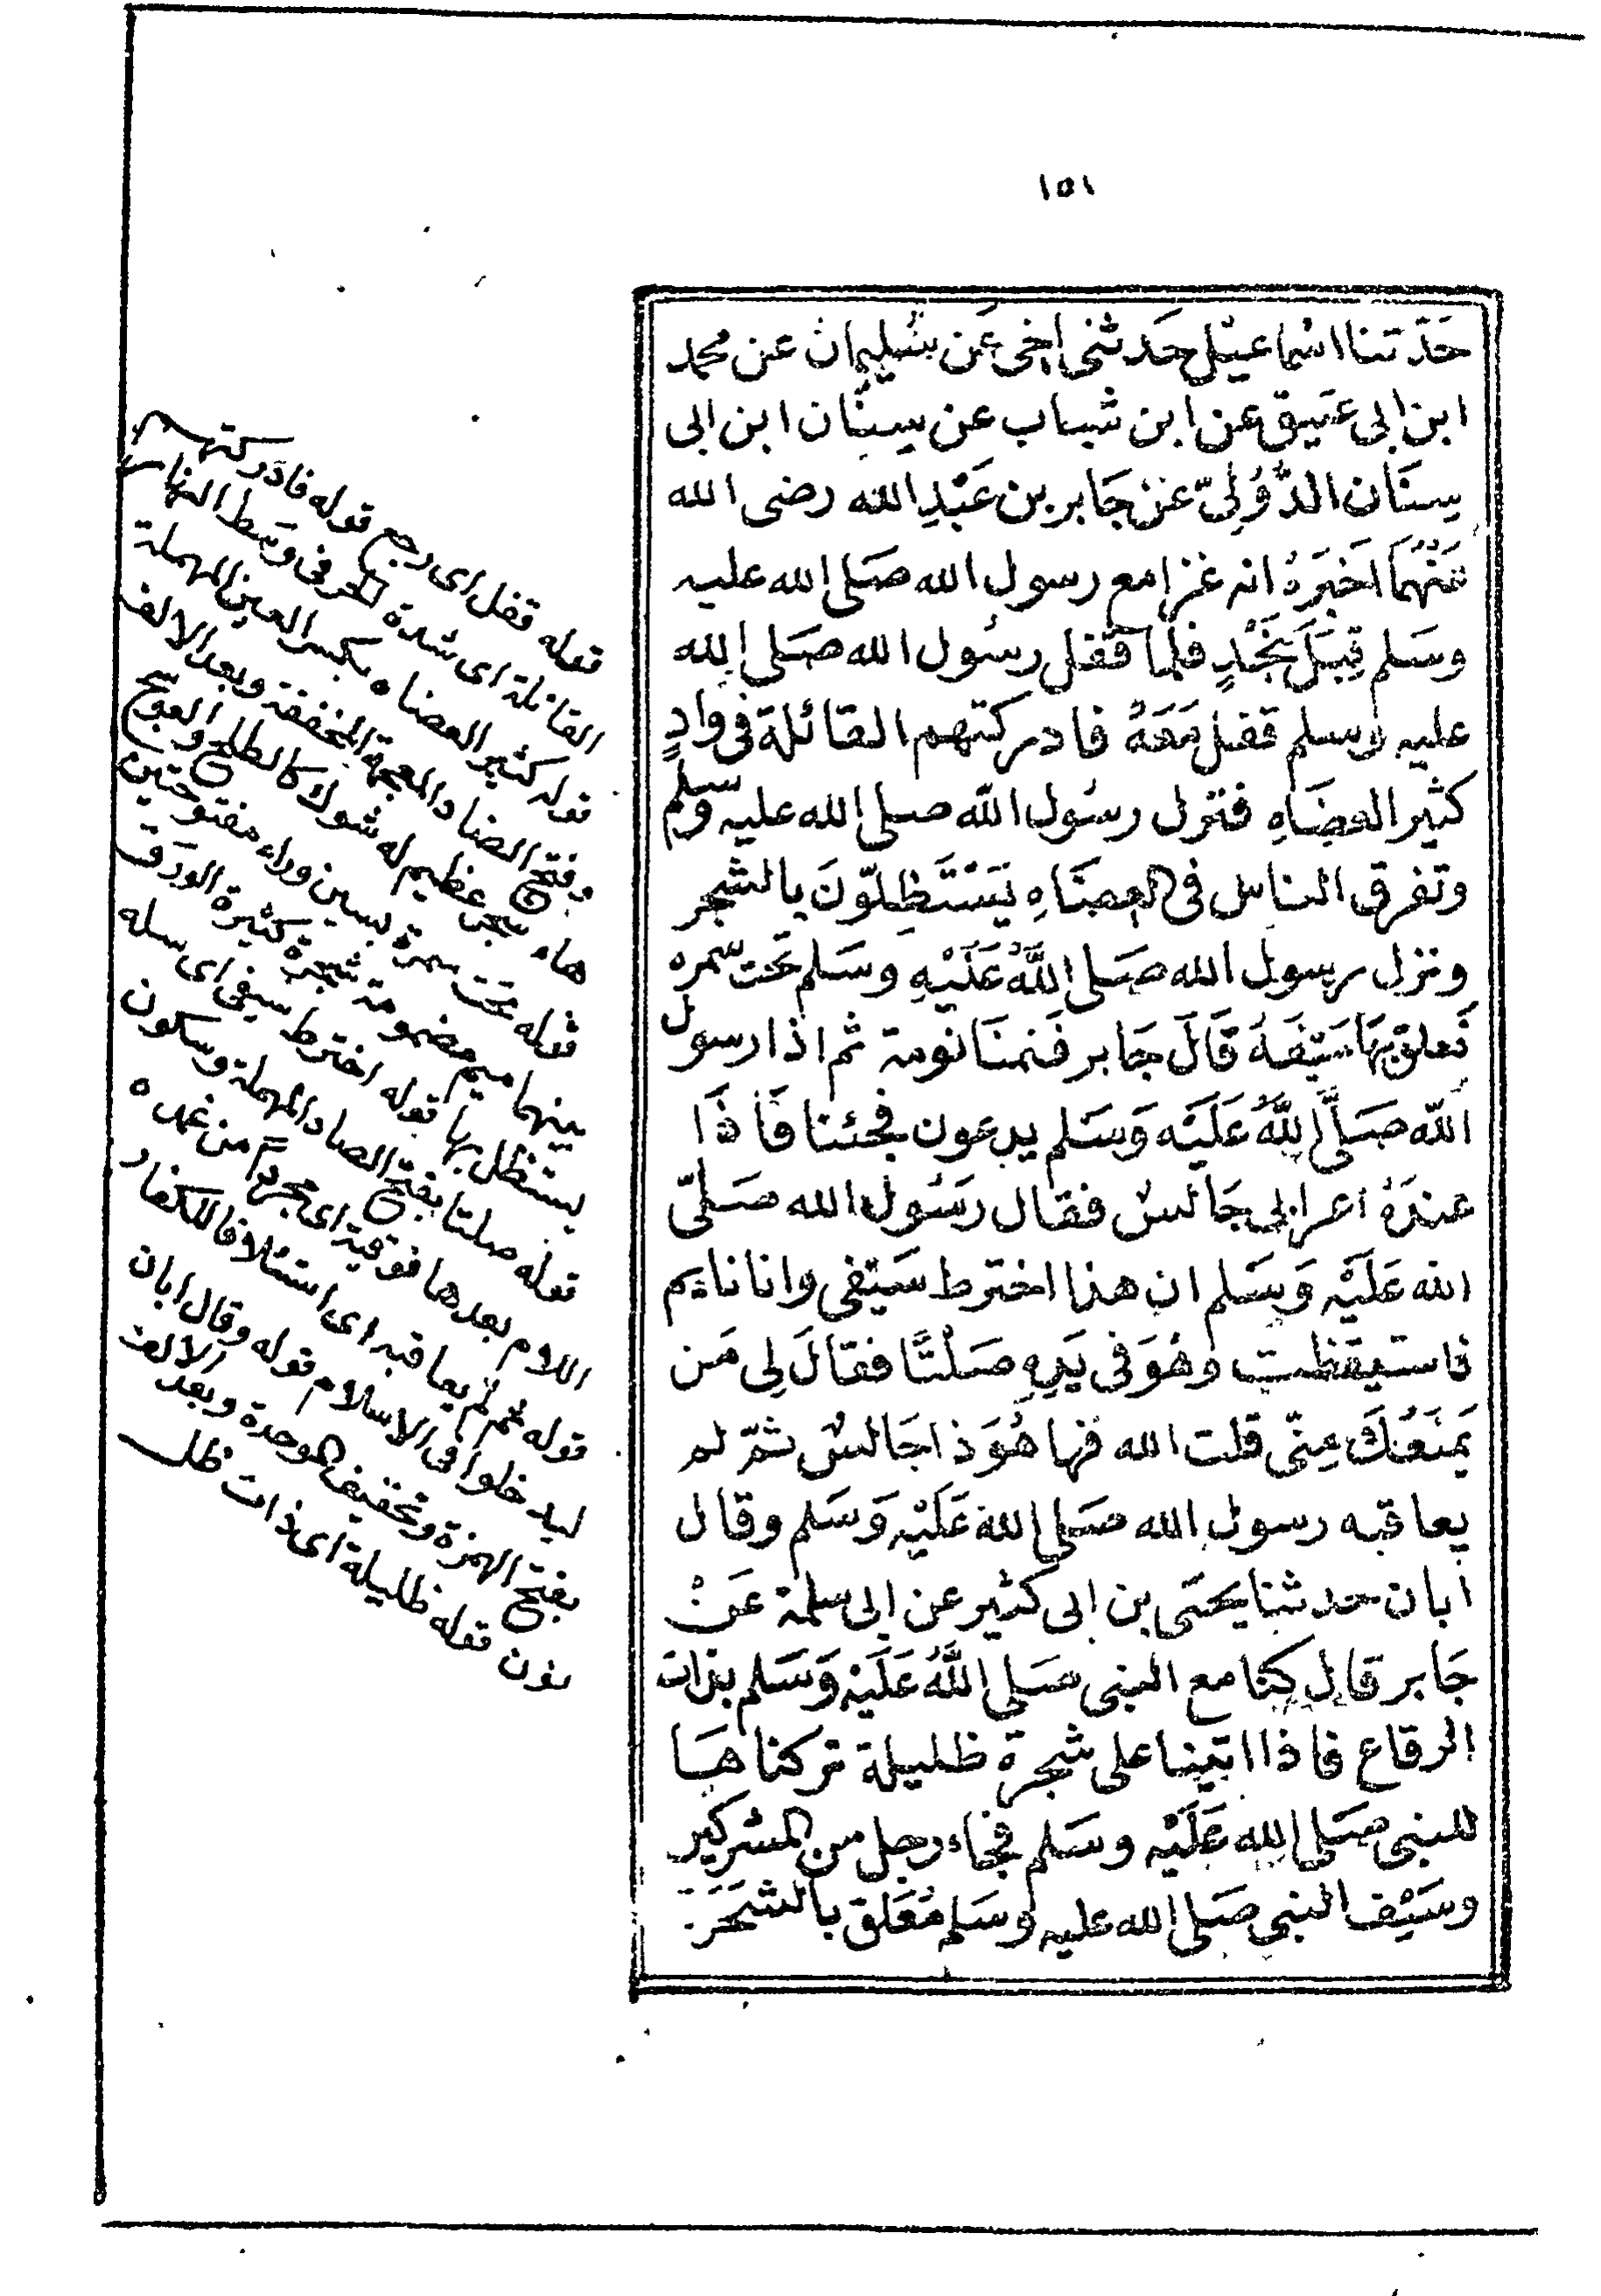 ١٥١
حَدّثنا اسْماعيْل حَدثنى اخى عَن سُليمان عن محمد
ابن ابى عَتيق عن ابن شهاب عن سِنَان ابن ابى
سِنَان الدُّؤَلِىّ عَنْ جَابر بن عَبْدِ الله رضى الله
عَنْهُمَا اَخبَرَهُ انه غزا مع رسول الله صَلى الله عليه
وسَلم قِبَلَ نَجْدٍ فلمّا قَفَل رسُول الله صَلى الله
عليه وسلم قفل مَعَهُ فادركتهم القائلة فى وادٍ
كثير العِضَاهِ فنزل رسُول الله صلى الله عليه وسلم
وتفرق الناس فى العِضَاهِ يَسْتَظِلوّنَ بالشجر
ونزل رسول الله صَلى اللهُ عَلَيْهِ وسَلم تَحْت سَمره
فَعلق بِهَا سَيْفَهُ قَالَ جَابر فَنمنَا نومة ثم اذا رسول
الله صَلَّى اللهُ عَلَيْه وَسَلم يدعون فجئنا فَاذَا
عِنْدَهُ اعرابى جَالسٌ فقال رَسُول الله صَلىّ
الله عَلَيْه وَسَلم ان هذا اخترط سَيْفى وانا نايم
فاستيقظت وهُوَ فى يَدِهِ صَلْتًا فقالَ لِى مَن
يَمنَعُكَ مِنىّ قلت الله فها هُوَ ذا جَالسٌ ثمّ لم
يعاقبه رسول الله صَلى الله عَلَيْه وَسَلم وقال
ابان حدثنا يحيَى بن ابى كثير عن ابى سلمة عَنْ
جَابر قال كنا مع النبى صَلى اللهُ عَلَيْه وَسَلم بذات
الرقاع فاذا اتينا على شجرة ظليلة تركناهَا
للنبى صَلى الله عَلَيْه وسَلم فجاء رجل من المشركين
وسَيْف النبى صَلى الله عليه وسَلم مُعَلق بالشجَرَة
قوله قفل اى رجع قوله فادركتهم
القائلة اى شدة الحر فى وسَط النهار
قوله كثير العضاه بكسر العين المهملة
وفتح الضاد المعجمة المخففة وبعد الالف
هاء شجر عظيم له شوك كالطلح والعوسج
قوله تحت سمرة بسين وراء مفتوحتين
بينهما ميم مضمومة شجرة كثيرة الورق
يستظل بها قوله اخترط سيفى اى سله
قوله صلتا بفتح الصاد المهملة وسكون
اللام بعدها فوقية اى مجردًا من غمده
قوله ثم لم يعاقبه اى استئلافا للكفار
ليدخلوا فى الاسلام قوله وقال ابان
بفتح الهمزة وتخفيف الموحدة وبعد الالف
نون قوله ظليلة اى ذات ظل